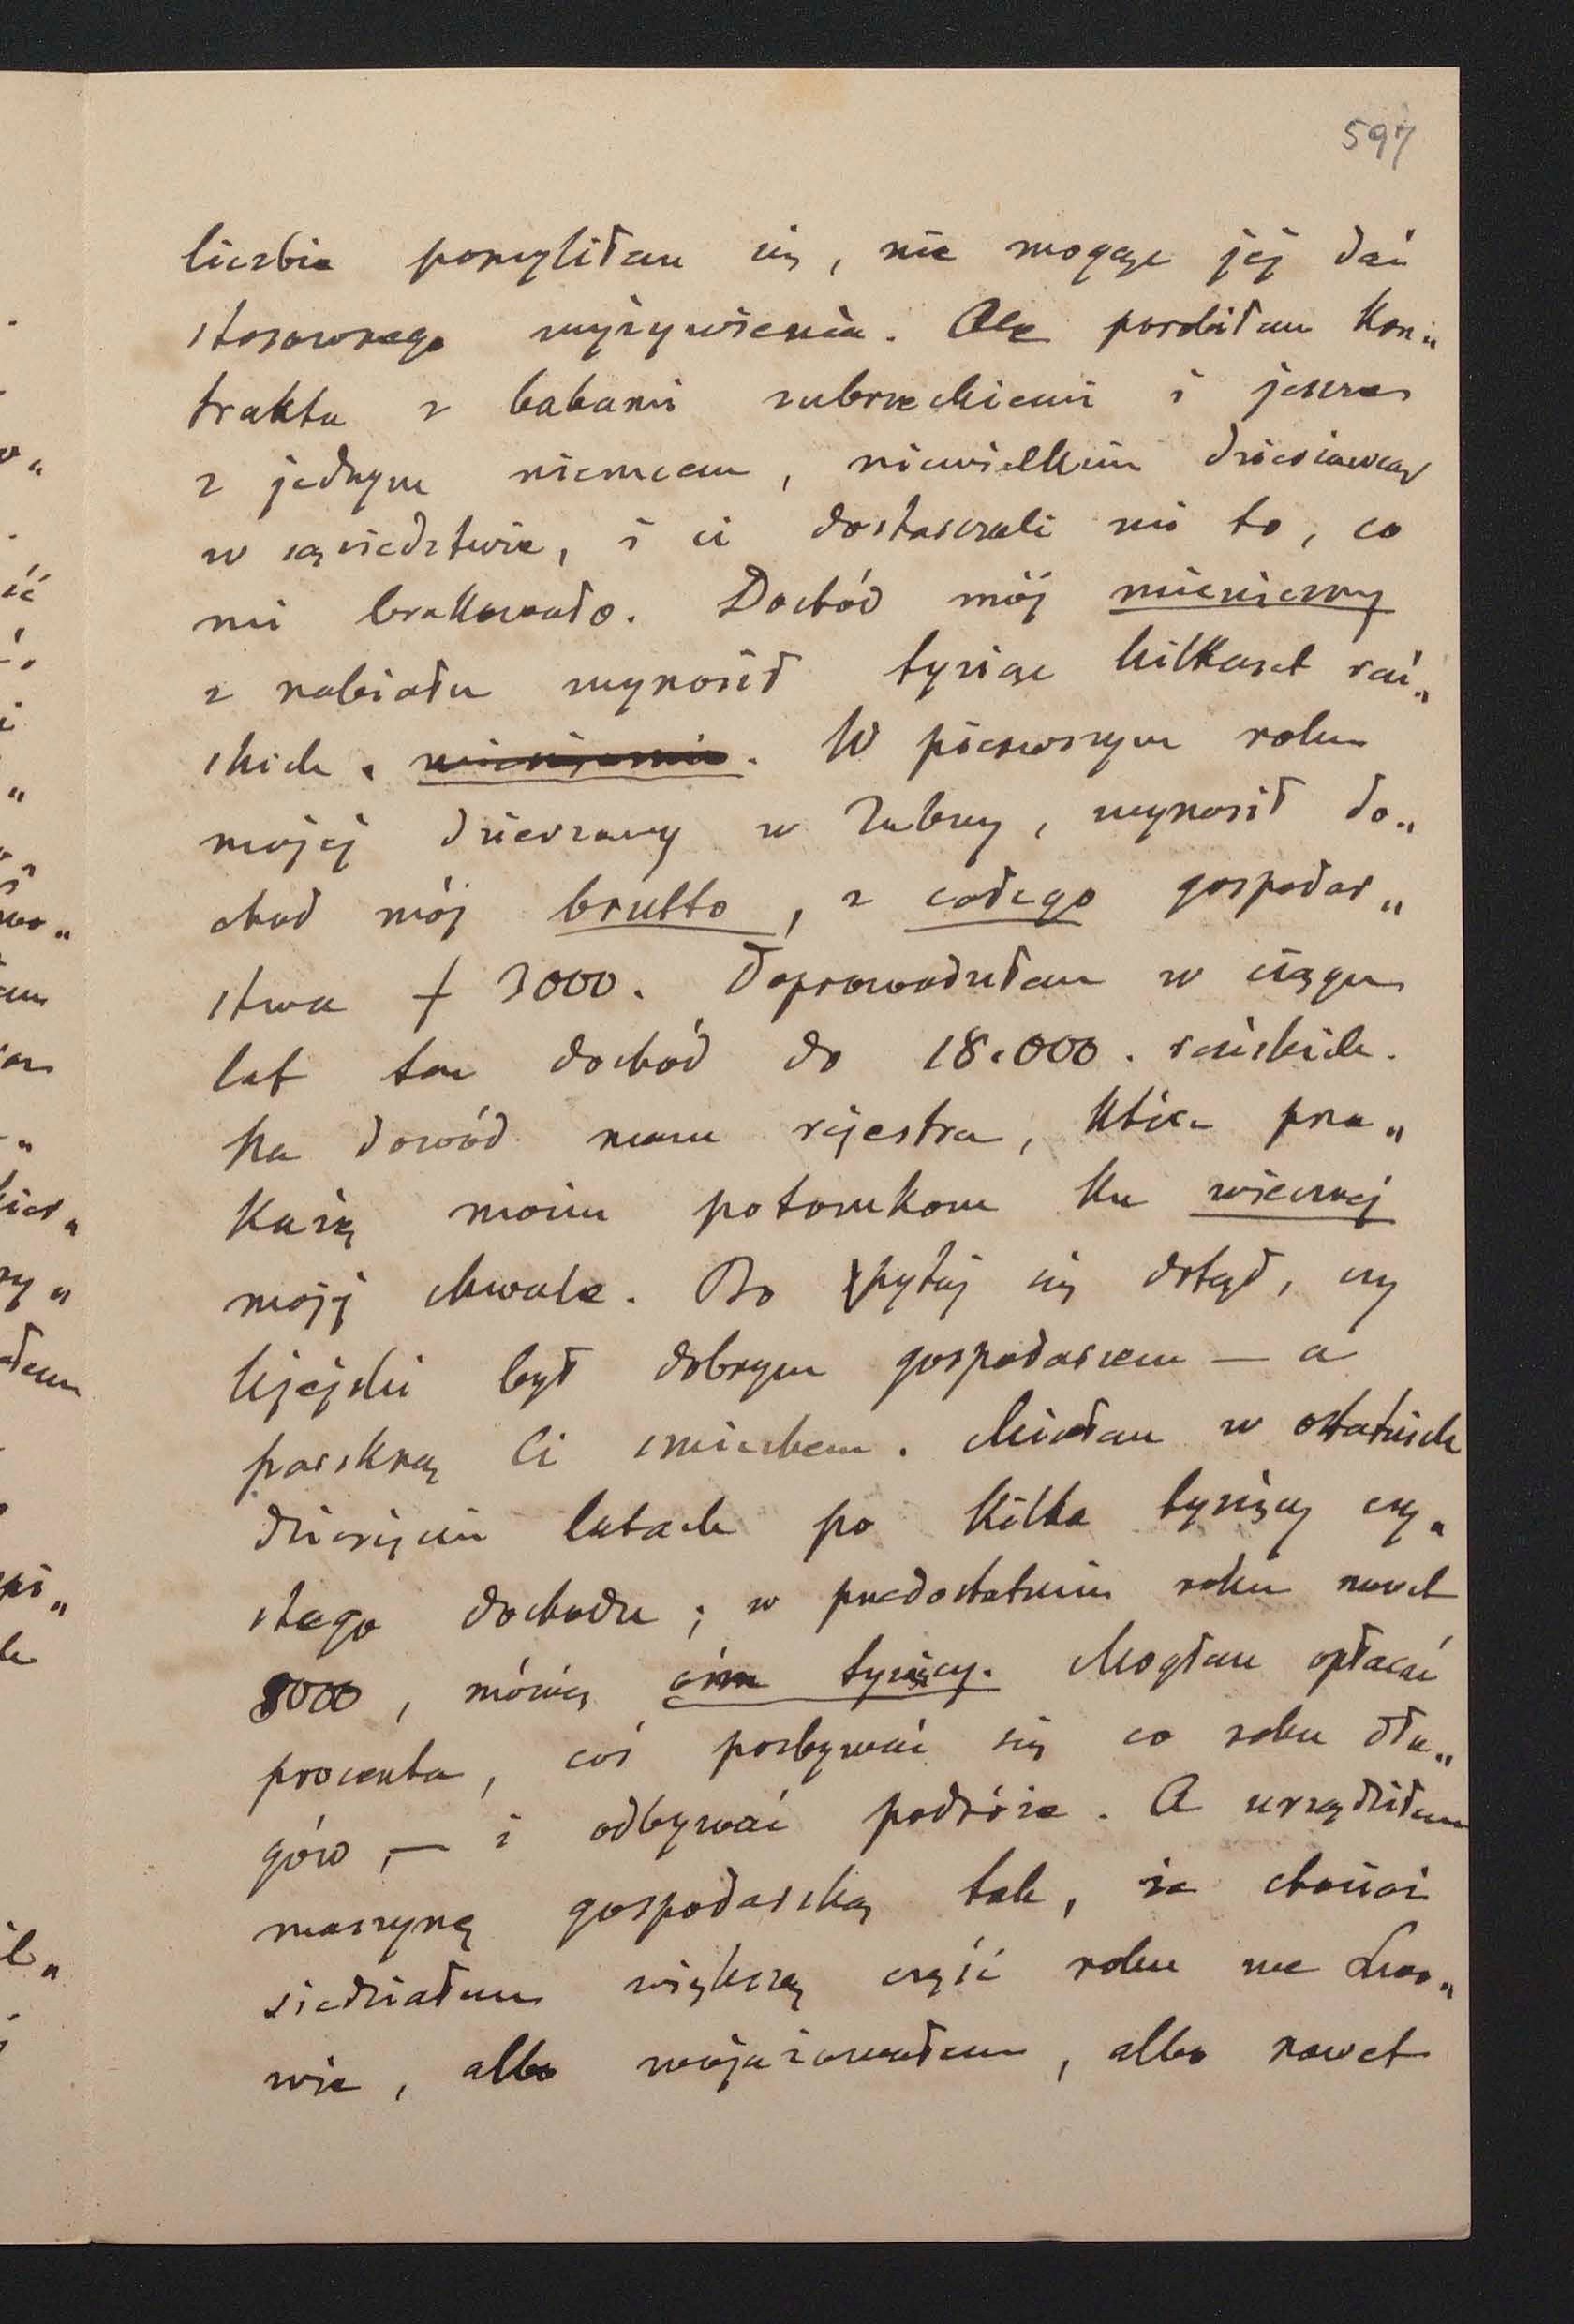 597
liczbie pomyliłam się, nie mogąc jej dać
stosownego wyżywienia. Ale porobiłam kon„
trakta z babami zubrzeckiemi i jeszcze
z jednym niemcem, niewielkim dzierżawcą
w sąsiedztwie, i ci dostarczali mi to, co
mi brakowało. Dochód mój miesięczny
z nabiału wynosił tysiąc kilkaset reń„
skich. miesięcznie. W pierwszym roku
mojej dzierżawy w Zubrzy, wynosił do„
chod mój brutto, z całego gospodar„
stwa f 3000. Doprowadziłam w ciągu
lat ten dochód do 18.000. reńskich.
Na dowód mam rejestra, które prze„
każę moim potomkom ku wiecznej
mojej chwale. Bo pytaj się dotąd, czy
Kjejski był dobrym gospodarzem — a
parskną Ci smiechem. Miałam w ostatnich
dziesięciu latach po kilka tysięcy czy„
stego dochodu; w przedostatnim roku nawet
8000, mówię óśm tysięcy. Mogłam opłacać
procenta, coś pozbywać się co roku dłu„
gów, — i odbywać podróże. A urządziłam
maszynę gospodarską tak, że chociaż
siedziałam większą część roku we Lwo„
wie, albo wojażowałam, albo nawet